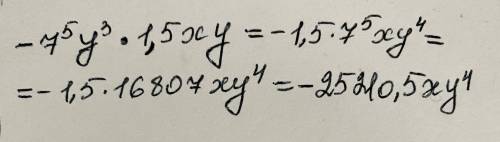 -7⁵y³ · 1,5xy = -1,5 · 7⁵xy⁴ =
= -1,5 · 16807xy⁴ = -25210,5xy⁴